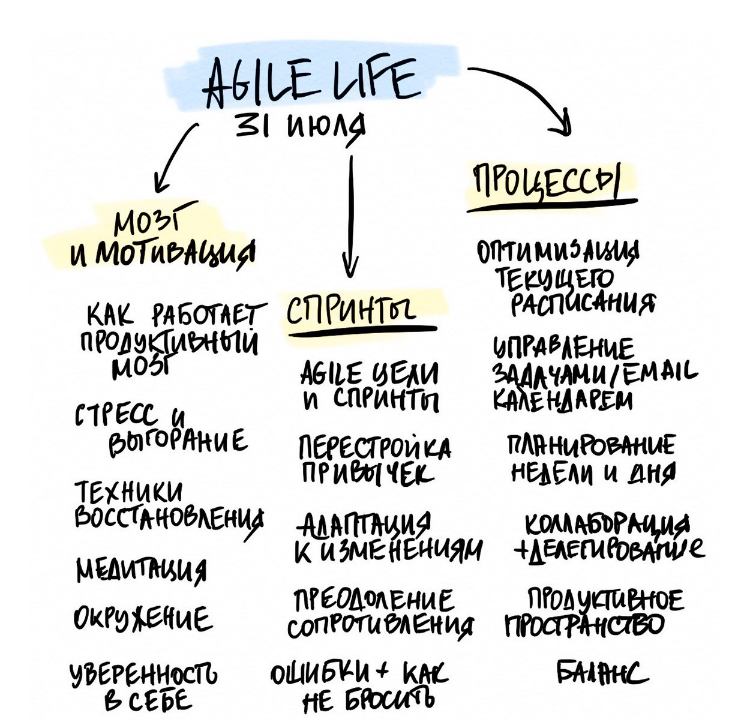 AGILE LIFE
31 ИЮЛЯ
МОЗГ
И МОТИВАЦИЯ
КАК РАБОТАЕТ
ПРОДУКТИВНЫЙ
МОЗГ
СТРЕСС И
ВЫГОРАНИЕ
ТЕХНИКИ
ВОССТАНОВЛЕНИЯ
МЕДИТАЦИЯ
ОКРУЖЕНИЕ
УВЕРЕННОСТЬ
В СЕБЕ
СПРИНТЫ
AGILE ЦЕЛИ
И СПРИНТЫ
ПЕРЕСТРОЙКА
ПРИВЫЧЕК
АДАПТАЦИЯ
К ИЗМЕНЕНИЯМ
ПРЕОДОЛЕНИЕ
СОПРОТИВЛЕНИЯ
ОШИБКИ + КАК
НЕ БРОСИТЬ
ПРОЦЕССЫ
ОПТИМИЗАЦИЯ
ТЕКУЩЕГО
РАСПИСАНИЯ
УПРАВЛЕНИЕ
ЗАДАЧАМИ/EMAIL
КАЛЕНДАРЕМ
ПЛАНИРОВАНИЕ
НЕДЕЛИ И ДНЯ
КОЛЛАБОРАЦИЯ
+ДЕЛЕГИРОВАНИЕ
ПРОДУКТИВНОЕ
ПРОСТРАНСТВО
БАЛАНС